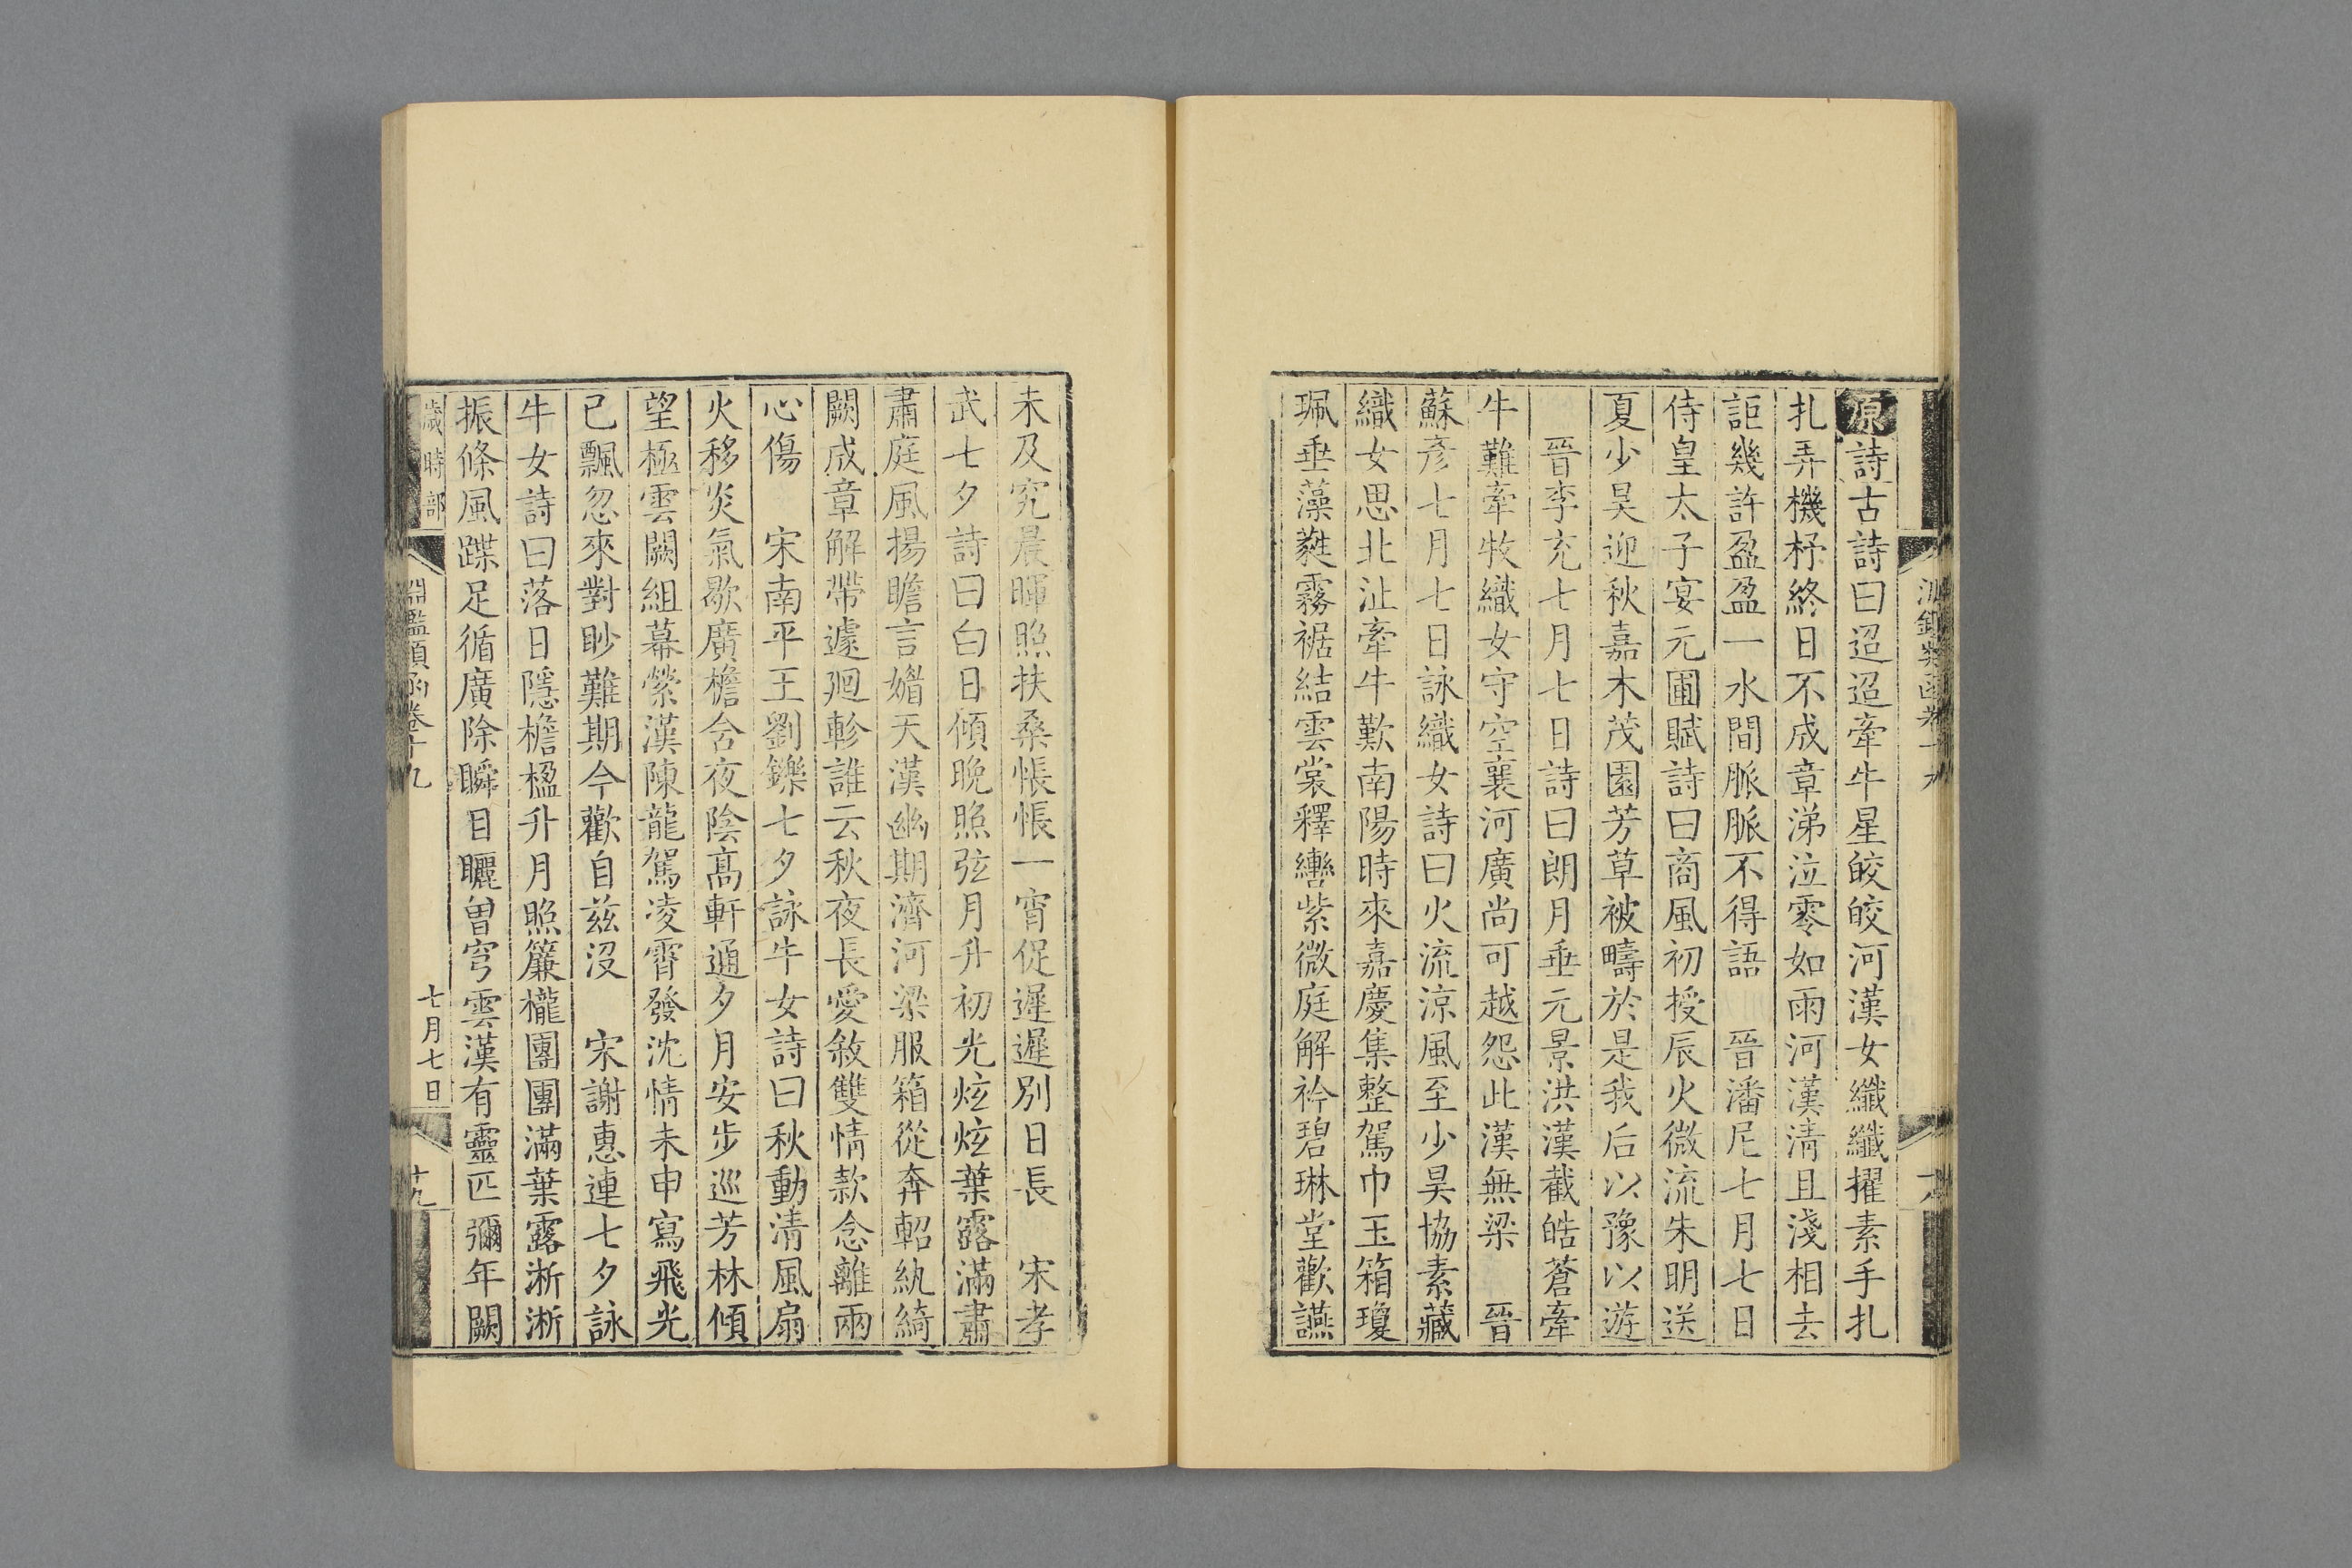 原詩古詩曰迢迢牽牛星皎皎河漢女纖纖擢素手扎
扎弄機杼終日不成章涕泣零如雨河漢清且淺相去
詎幾許盈盈一水間脈脈不得語　晉潘尼七月七日
侍皇太子宴元圃賦詩曰商風初授辰火微流朱明送
夏少昊迎秋嘉木茂園芳草被疇於是我后以豫以遊
晉李充七月七日詩曰朗月垂元景洪漢截皓蒼牽
牛難牽牧織女守空襄河廣尚可越怨此漢無梁　晉
蘇彥七月七日詠織女詩曰火流涼風至少昊協素藏
織女思北沚牽牛歎南陽時來嘉慶集整駕巾玉箱瓊
珮垂藻蕤霧裾結雲裳釋轡紫微庭解衿碧琳堂歡讌
未及究晨暉照扶桑悵悵一宵促遲遲別日長　宋孝
武七夕詩曰白日傾晚照弦月升初光炫炫葉露滿肅
肅庭風揚瞻言媚天漢幽期濟河梁服箱從奔軺紈綺
闕成章解帶遽廻軫誰云秋夜長愛敘雙情款念離兩
心傷　宋南平王劉鑠七夕詠牛女詩曰秋動清風扇
火移炎氣歇廣檐含夜陰高軒通夕月安步巡芳林傾
望極雲闕組幕縈漢陳龍駕凌霄發沈情未申寫飛光
已飄忽來對眇難期今歡自茲沒　宋謝惠連七夕詠
牛女詩曰落日隱檐楹升月照簾櫳團團滿葉露淅淅
振條風蹀足循廣除瞬目曬曽穹雲漢有靈匹彌年闕
歲時部　淵鑑類函卷十九　七月七日　十九